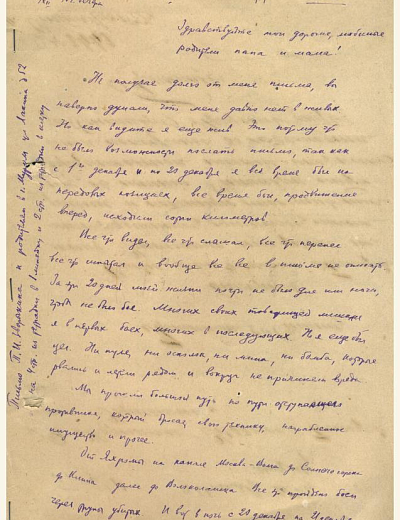 Здравствуйте мои дорогие, любимые
родители папа и мама!
Не получая долго от меня письма, вы
наверно думали, что меня давно нет в живых.
Но как видите я еще жив. Это потому что
не было возможности послать письмо, так как
с 1го декабря и по 20 декабря я все время был на
передовых позициях, все время бои, продвижение
вперед, исходили сотни километров.
Все что видел, все что слышал, все что перенес
все что испытал и вообще все все в письме не описать
За эти 20 дней моей жизни почти не было дня или ночи,
чтобы не было боя. Многих своих товарищей лишился
я в первых боях, многих в последующих. Но я еще был
цел. Ни пуля, ни осколок, ни мина, ни бомба, которые
рвались и летели рядом и вокруг не причинили вреда
Мы прошли большой путь по пути отступающего
противника, который бросал свою технику, награбленное
имущество и прочее.
От Яхромы на канале Москва-Волга до Солнечногорска
до Клина далее до Волоколамска. Все это пройдено боем
через трупы убитых. И вот в ночь с 20 декабря на
Письмо П.И. к родителям в г. Муром ул. Ленина д 52